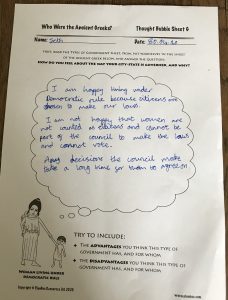 Who Were the Ancient Greeks?
Thought Bubble Sheet 6
Name: Seth
Date:
HOW DO YOU FEEL ABOUT THE WAY YOUR CITY-STATE IS GOVERNED, AND WHY?
I am happy living under
Democratic rule because citizens are
chosen to make our laws.
I am not happy that women are
not counted as citizens and cannot be
part of the council to make the laws
and cannot vote.
Any decisions the council make
take a long time for them to agree on
TRY TO INCLUDE:
THE ADVANTAGES YOU THINK THIS TYPE OF
GOVERNMENT HAS, AND FOR WHOM
THE DISADVANTAGES YOU THINK THIS TYPE OF
GOVERNMENT HAS, AND FOR WHOM
WOMAN LIVING UNDER
DEMOCRATIC RULE